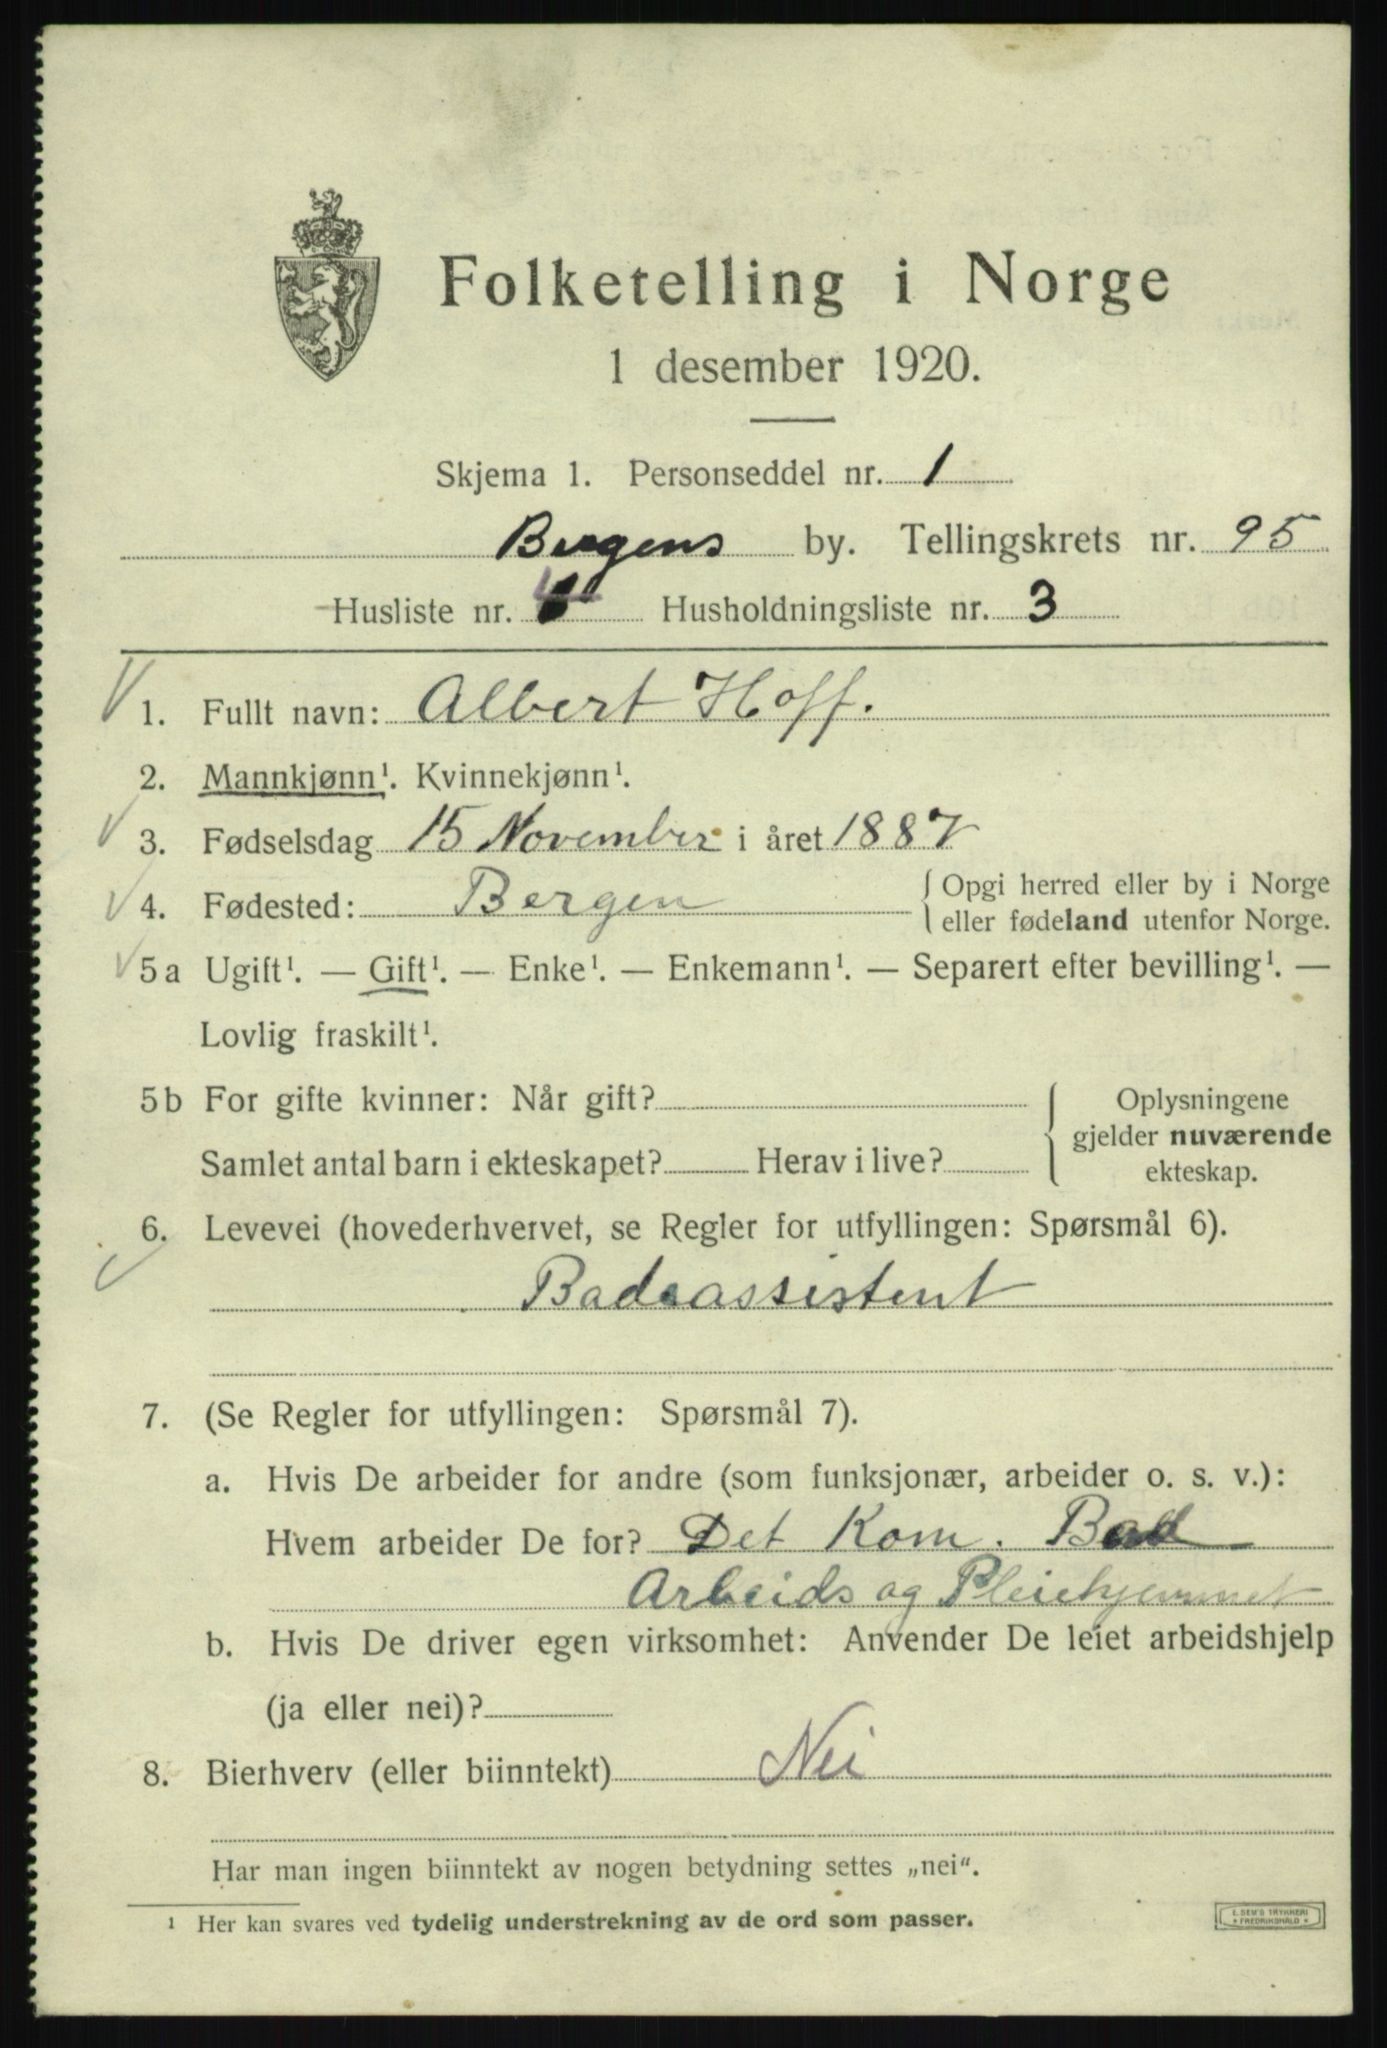 Folketelling i Norge
1 desember 1920.
Skjema 1. Personseddel nr. 1
Bergens by. Tellingskrets nr. 95
Husliste nr. Husholdningsliste nr. 3
1. Fullt navn: Albert Hoff.
2. Mannkjønn¹. Kvinnekjønn¹.
3. Fødselsdag 15 November i året 1887
4. Fødested: Bergen { Opgi herred eller by i Norge
eller fødeland utenfor Norge.
5a Ugift¹. — Gift¹. — Enke¹. — Enkemann¹. — Separert efter bevilling¹. —
Lovlig fraskilt¹.
5b For gifte kvinner: Når gift? { Oplysningene
gjelder nuværende
Samlet antal barn i ekteskapet? Herav i live?
ekteskap.
6. Levevei (hovederhvervet, se Regler for utfyllingen: Spørsmål 6).
Badeassistent
7. (Se Regler for utfyllingen: Spørsmål 7).
a. Hvis De arbeider for andre (som funksjonær, arbeider o. s. v.):
Hvem arbeider De for? Det Kom. Bad
Arbeids og Pleiehjemmet
b. Hvis De driver egen virksomhet: Anvender De leiet arbeidshjelp
(ja eller nei)?
8. Bierhverv (eller biinntekt) Nei
Har man ingen biinntekt av nogen betydning settes „nei“.
¹ Her kan svares ved tydelig understrekning av de ord som passer.
E. SEM'S TRYKKERI
FREDRIKSHALD